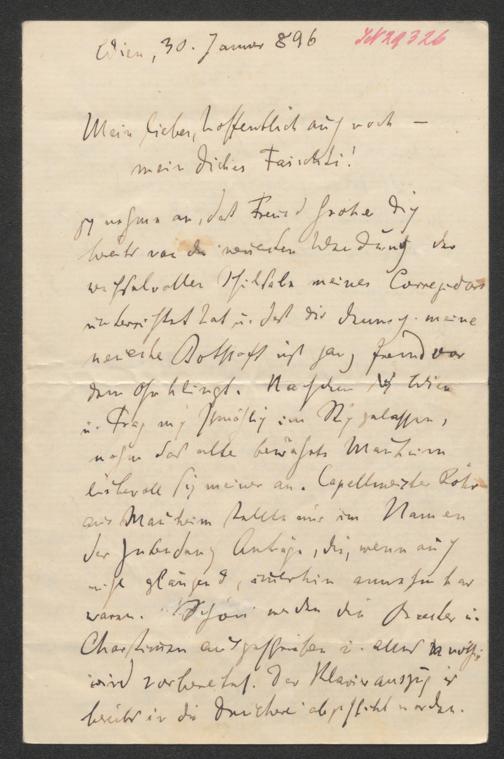 Wien, 30. Januar 896
Mein lieber, hoffentlich auch noch —
mein dickes Faisskti!
Ich nehme an, daß Freund Grohe dich
bereits von der neuesten Wendung der
wechselvollen Schicksale meines Corregidors
unterrichtet hat u. daß dir demnach meine
neueste Botschaft nicht ganz fremd vor
dem Ohr klingt. Nachdem Wien
u. Prag mich schmählich im Stich gelassen,
nahm das alte bewährte Manheim
liebevoll sich meiner an. Capellmeister Röhr
aus Manheim stellte mir im Namen
der Intendanz Anträge, die, wenn auch
nicht glänzend, immerhin annehmbar
waren. Schon werden die Orchester u.
Chorstimen ausgeschrieben u. alles nöthige
wird vorbereitet. Der Klavierauszug ist
bereits in die Druckerei abgeschickt worden.